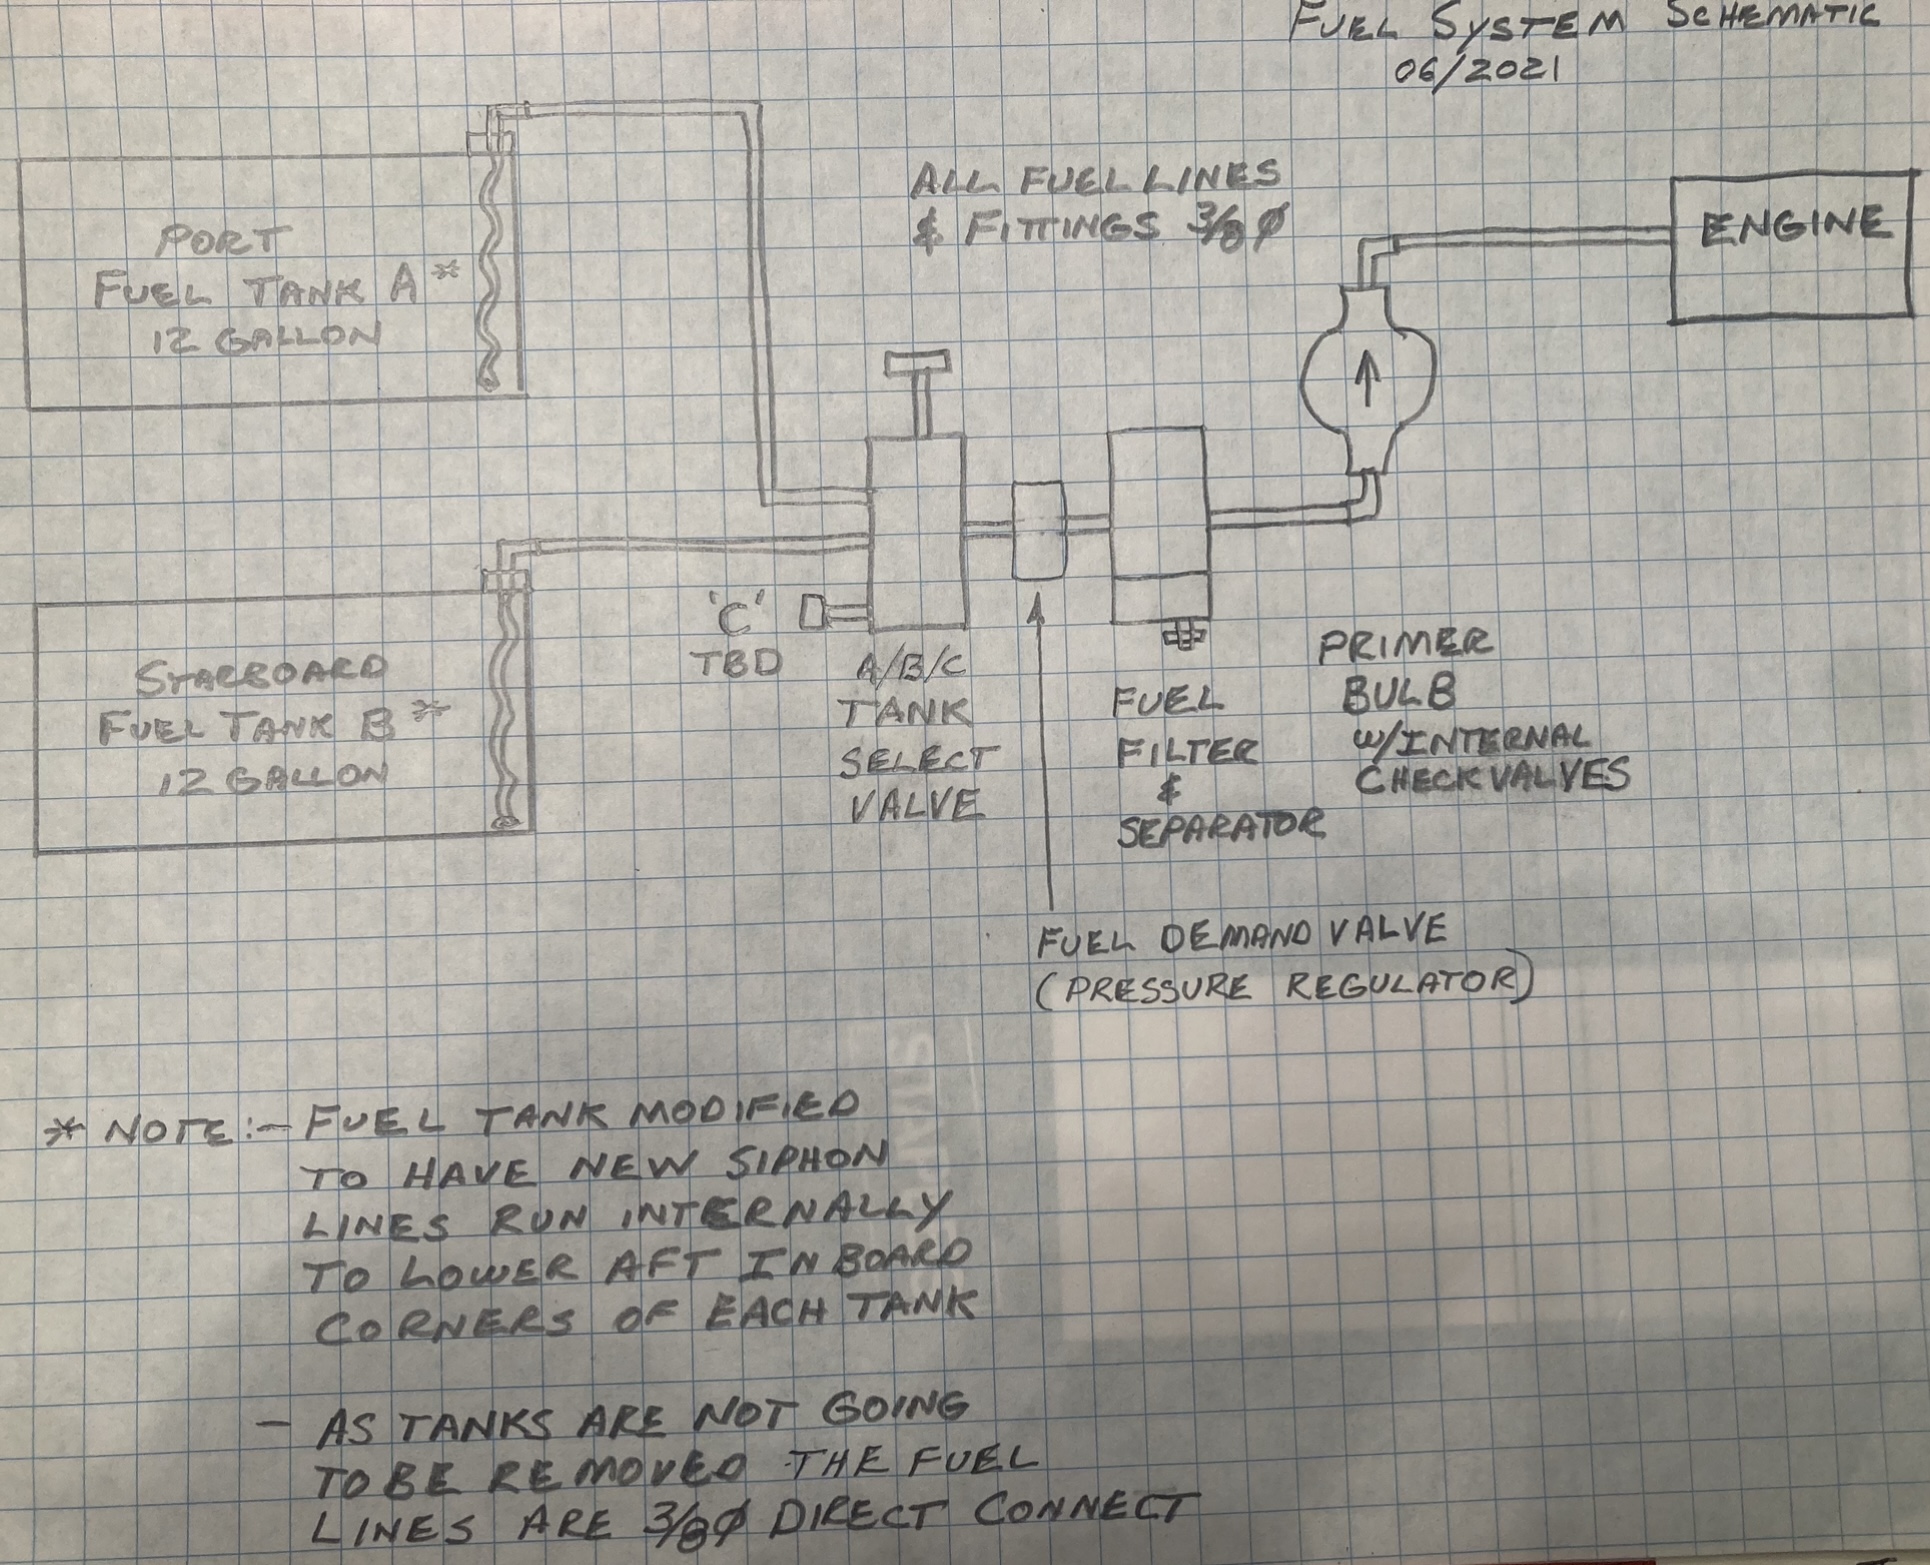 FUEL SYSTEM SCHEMATIC
06/2021
ALL FUEL LINES
& FITTINGS 3/8 Ø
ENGINE
PORT
FUEL TANK A*
12 GALLON
STARBOARD
FUEL TANK B*
12 GALLON
'C'
TBD
A/B/C
TANK
SELECT
VALVE
FUEL
FILTER
&
SEPARATOR
PRIMER
BULB
W/INTERNAL
CHECK VALVES
FUEL DEMAND VALVE
(PRESSURE REGULATOR)
* NOTE:- FUEL TANK MODIFIED
TO HAVE NEW SIPHON
LINES RUN INTERNALLY
TO LOWER AFT INBOARD
CORNERS OF EACH TANK
- AS TANKS ARE NOT GOING
TO BE REMOVED THE FUEL
LINES ARE 3/8Ø DIRECT CONNECT